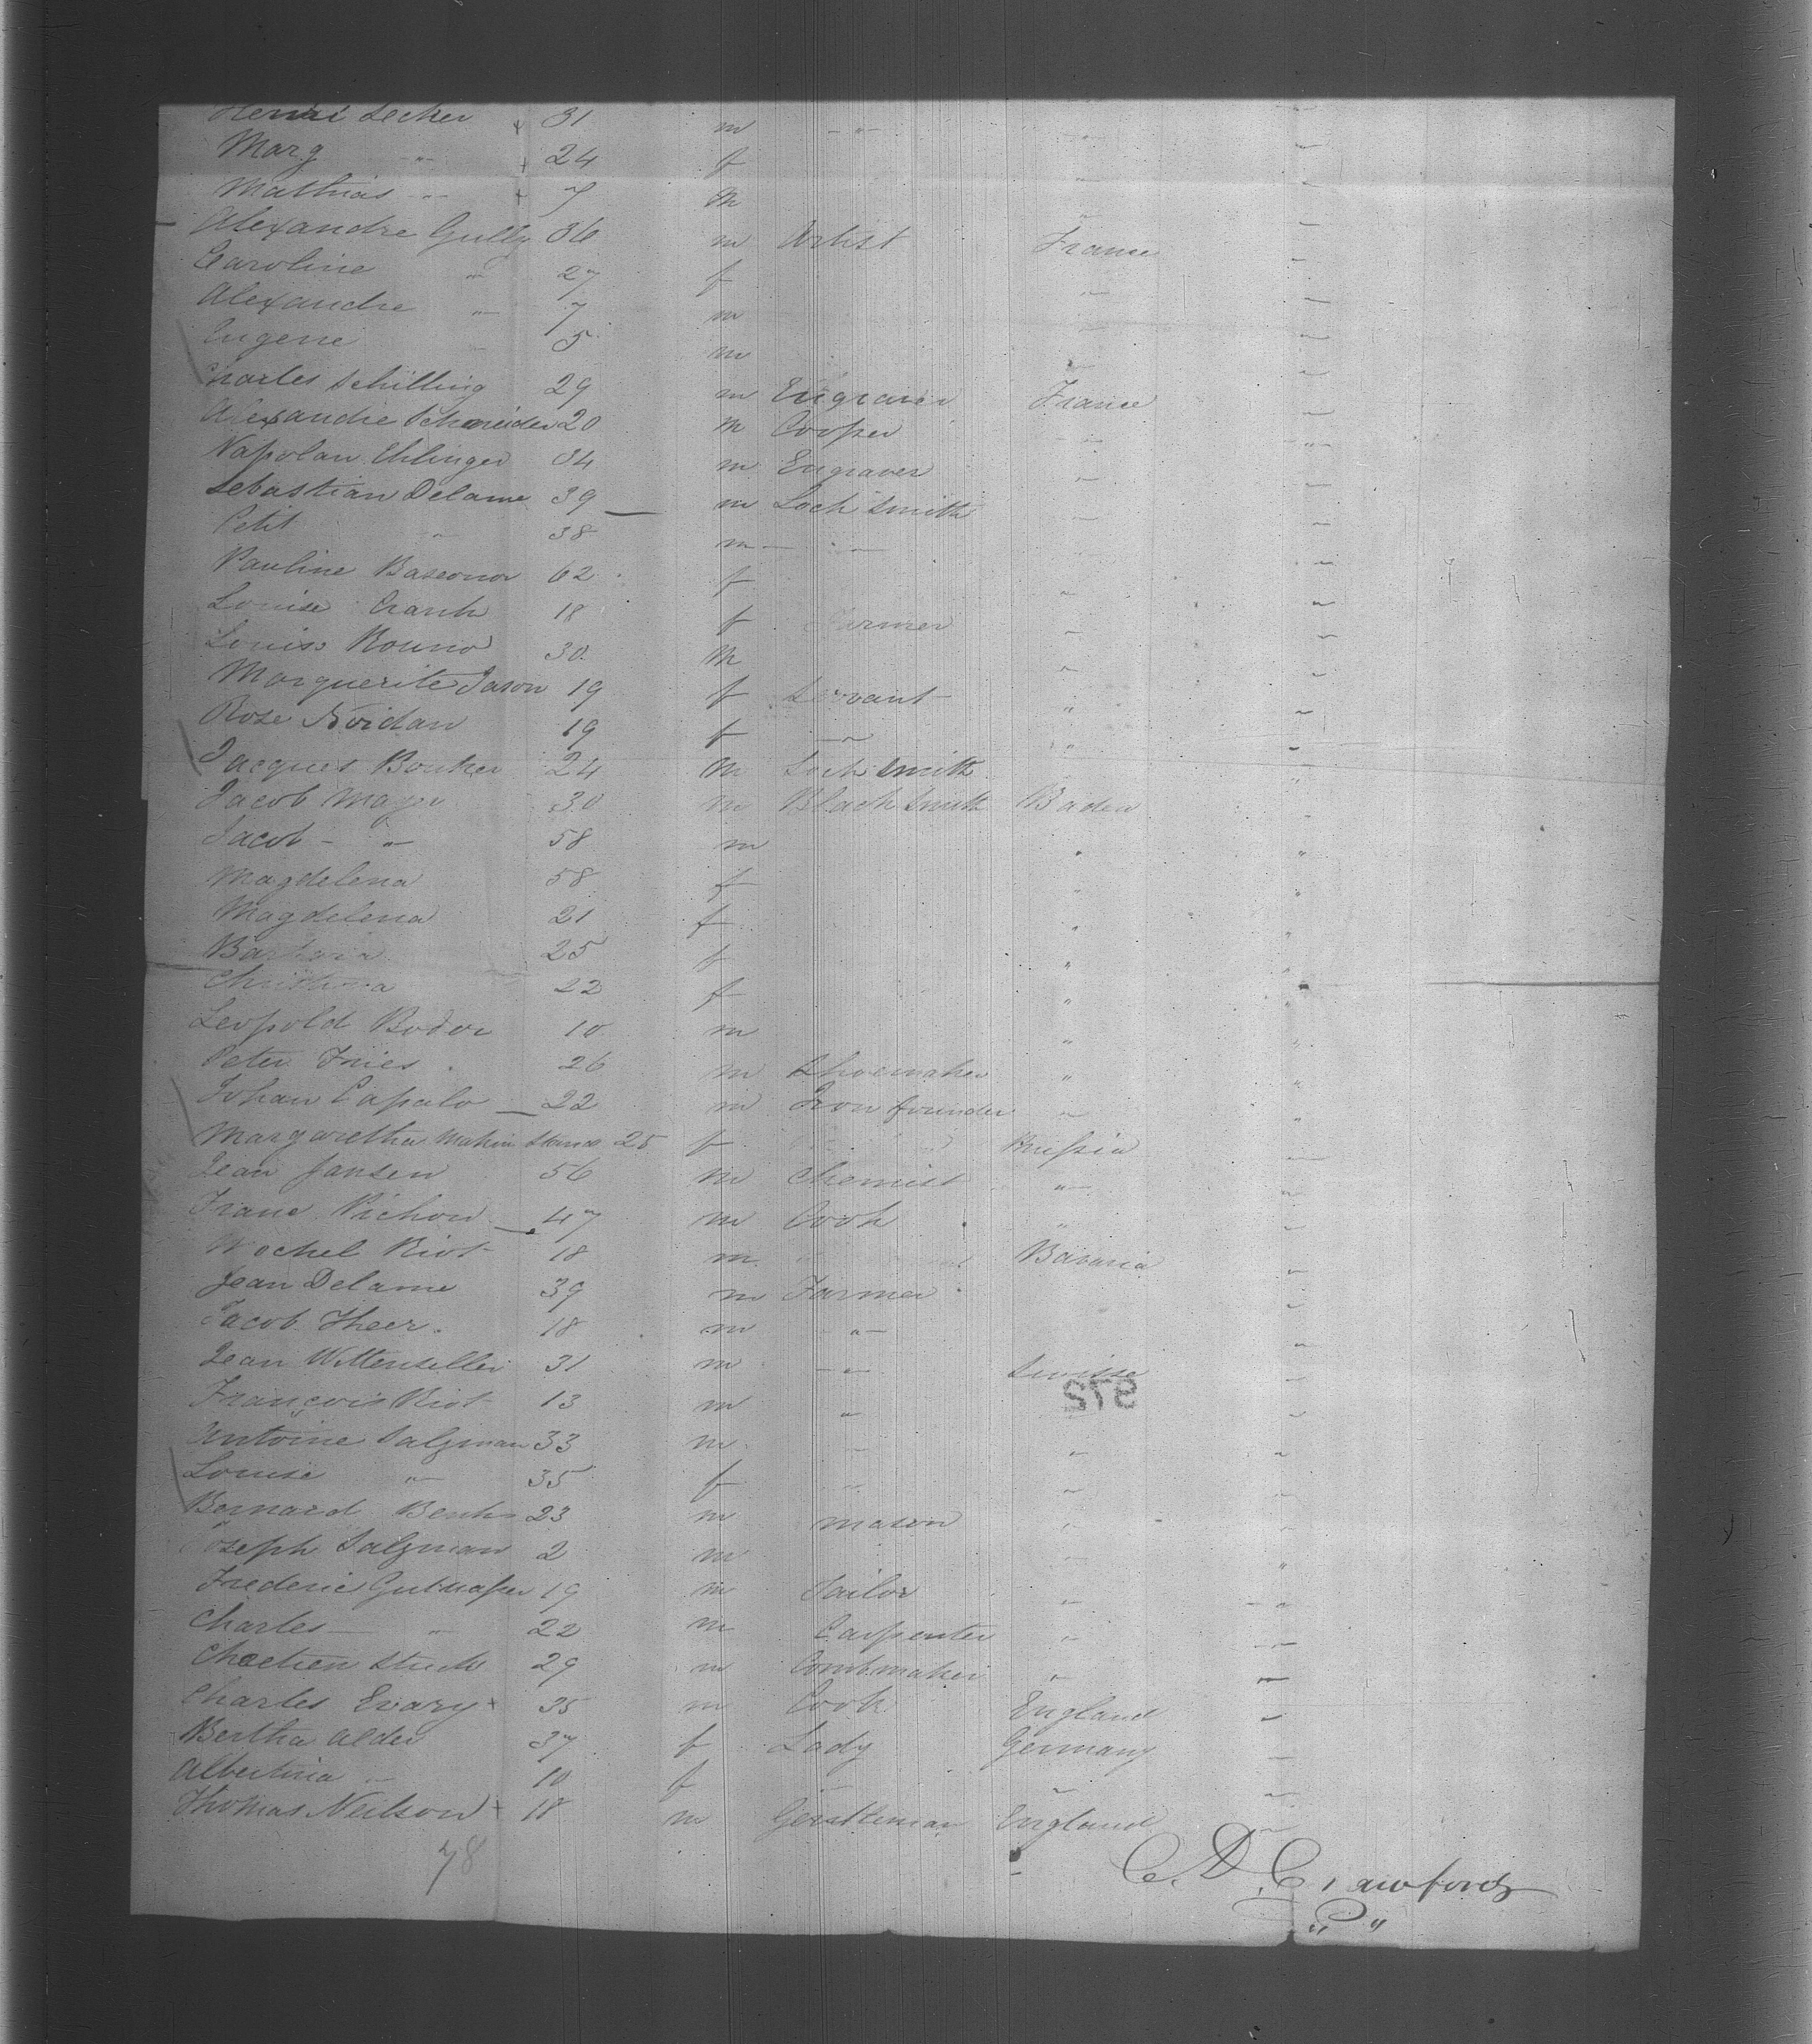 Henri Lecher 31 m - " - "
Marg " 24 f "
Mathias " 7 m "
Alexandre Gully 36 m Artist France "
Caroline " 27 f " "
Alexandre " 7 m " "
Eugene " 5 m " "
Charles Schilling 29 m Engraver France "
Alexandre Schneider 20 m Cooper " "
Napolan Ehlinger 34 m Engraver " "
Sebastian Delame 39 m Lock Smith " "
Petit " 38 m " "
Pauline 62 f " "
Louise 18 f " "
Louis 30 m " "
Marguerite Jason 19 f Servant " "
Rose Noidan 19 f " " "
Jacques Bouker 24 m Lock Smith " "
Jacob Mayer 30 m Black Smith Baden "
Jacob - " 58 m " "
Magdelena 58 f " "
Magdelena 21 f " "
Barbara 25 f " "
Christina 22 f " "
Leopold Boder 10 m " "
Peter Fries 26 m Shoemaker " "
Johan Capalo 22 m Iron founder " "
Margaretha 25 f Prussia "
Jean Jansen 56 m Chemist " "
Franc Pichon 47 m Cook " "
Riot 18 m Bavaria "
Jean Delame 39 m Farmer "
Jacob Heer 18 m " "
Jean Wittenseller 31 m " Swisse "
578
François Riot 13 m " "
Antoine Salzman 33 m " "
Louise " 35 f " "
Bernard 23 m Mason " "
Joseph Salzman 2 m "
Frederic 19 m Tailor " "
Charles " 22 m Carpenter " "
29 m Combmaker " "
Charles Evary 35 m Cook England "
Bertha Alder 37 f Lady Germany "
Albertina " 10 f " " "
Thomas Neilson 18 m Gentleman England "
78
C. D. Crawford